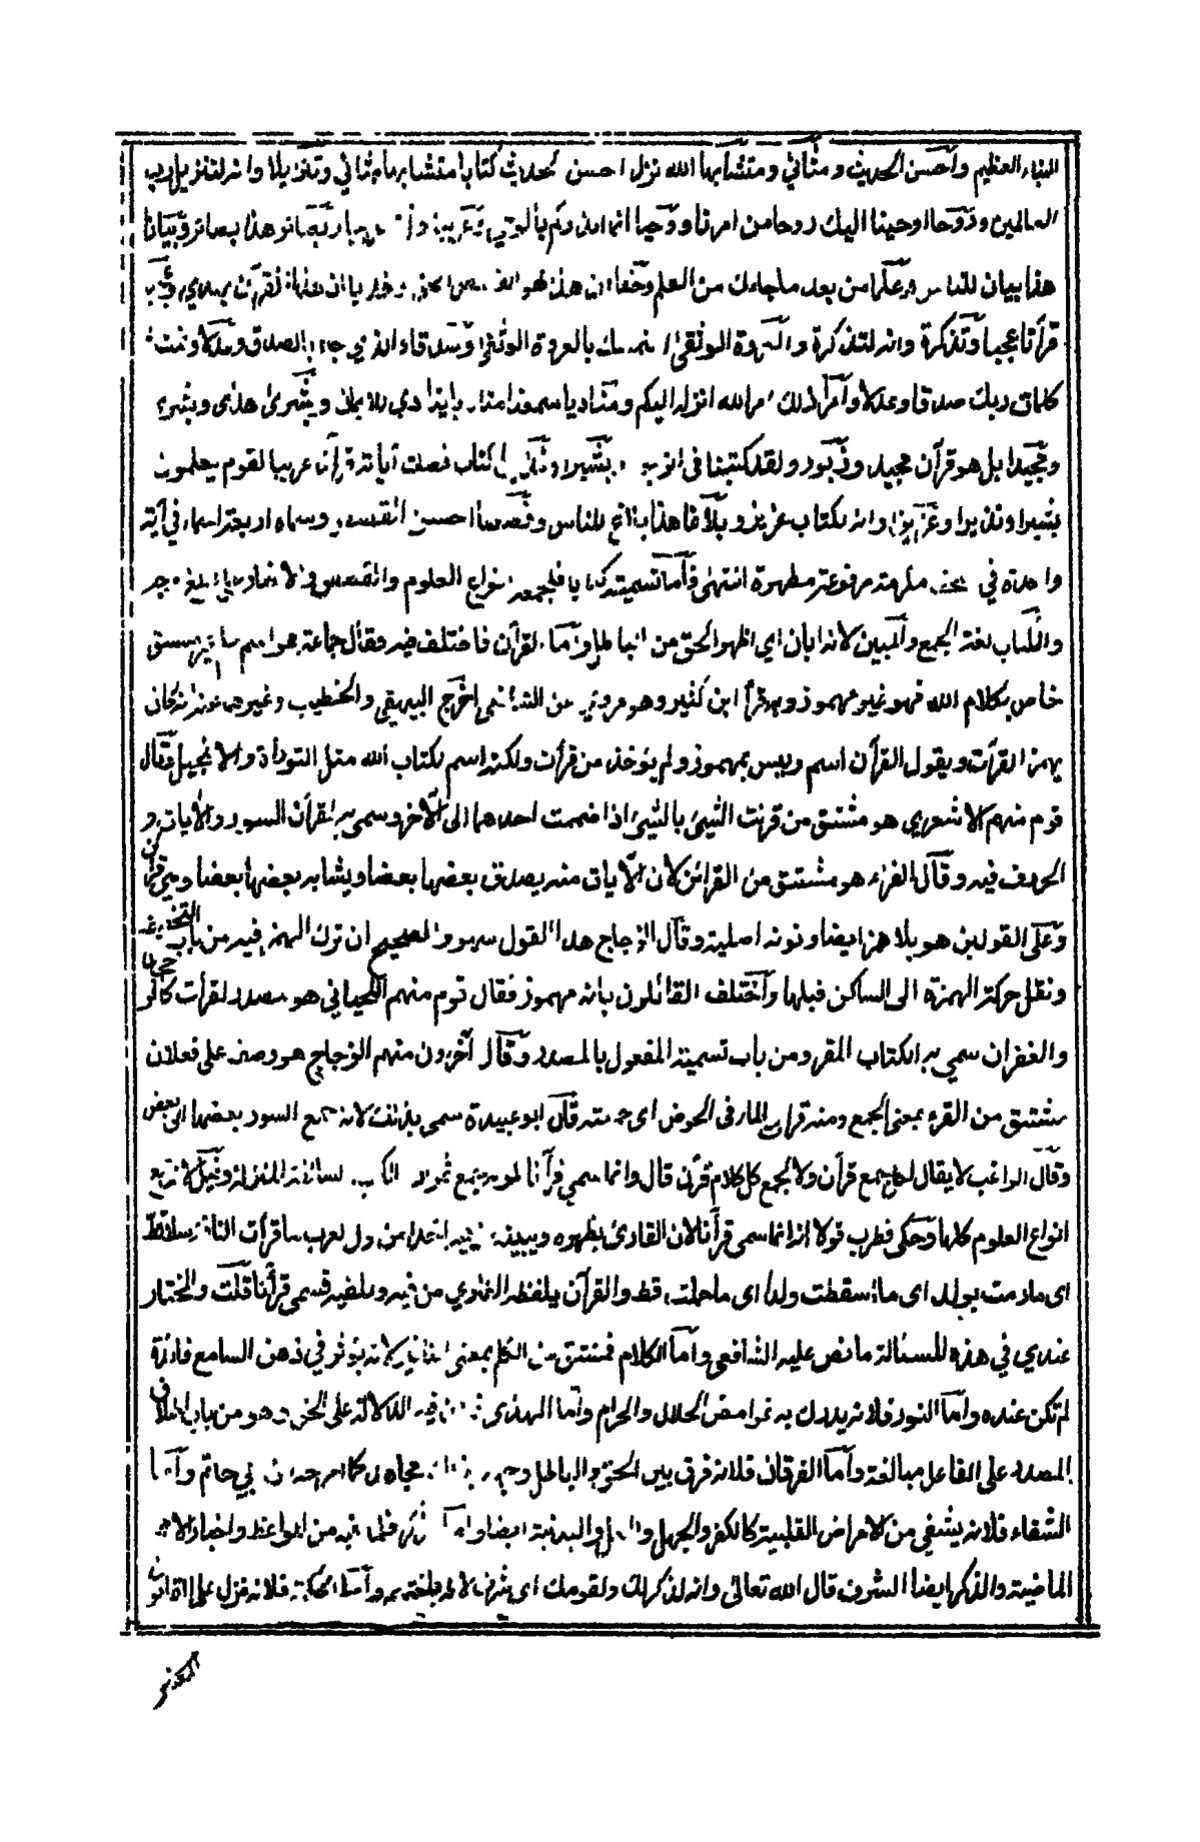 النباء العظيم وأحسن الحديث ومثاني ومتشابها الله نزل احسن الحديث كتابا متشابها مثاني وتنزيلا وانه لتنزيل رب
العالمين وروحا اوحينا اليك روحا من امرنا ووحيا انما انذركم بالوحي وعربيا قرانا عربيا وبصائر هذا بصائر وبيانا
هذا بيان للناس وعلما من بعد ما جاءك من العلم وحقا ان هذا لهو القصص الحق وهديا ان هذا القرآن يهدي وعجبا
قرآنا عجبا وتذكرة وانه لتذكرة والعروة الوثقى استمسك بالعروة الوثقى وصدقا والذي جاء بالصدق وعدلا وتمت
كلمات ربك صدقا وعدلا وأمرا ذلك امر الله انزله اليكم ومناديا سمعنا مناديا ينادي للايمان وبشرى هدى وبشرى
ومجيدا بل هو قرآن مجيد وزبور ولقد كتبنا في الزبور وبشيرا ونذيرا كتاب فصلت آياته قرآنا عربيا لقوم يعلمون
بشيرا ونذيرا وعزيزا وانه لكتاب عزيز وبلاغا هذا بلاغ للناس وقصصا احسن القصص وسماه اربعة اسماء في آية
واحدة في صحف مكرمة مرفوعة مطهرة انتهى فأما تسميته كتابا فلجمعه انواع العلوم والقصص والاخبار على ابلغ وجه
والكتاب لغة الجمع والمبين لانه ابان اي اظهر الحق من الباطل وأما القرآن فاختلف فيه فقال جماعة هو اسم علم غير مشتق
خاص بكلام الله فهو غير مهموز وبه قرأ ابن كثير وهو مروي عن الشافعي اخرج البيهقي والخطيب وغيرهما عنه انه كان
يهمز القرآت ويقول القرآن اسم وليس بمهموز ولم يؤخذ من قرأت ولكنه اسم لكتاب الله مثل التوراة والانجيل وقال
قوم منهم الاشعري هو مشتق من قرنت الشيئ بالشيئ اذا ضممت احدهما الى الآخر وسمى به لقران السور والآيات و
الحروف فيه وقال الفراء هو مشتق من القرائن لان الآيات منه يصدق بعضها بعضا ويشابه بعضها بعضا وهي قرائن
وعلى القولين هو بلا همز ايضا ونونه اصلية وقال الزجاج هذا القول سهو والصحيح ان ترك الهمزة فيه من باب التخفيف
ونقل حركة الهمزة الى الساكن قبلها وأختلف القائلون بانه مهموز فقال قوم منهم اللحياني هو مصدر لقرأت كالرجحان
والغفران سمي به الكتاب المقرو من باب تسمية المفعول بالمصدر وقال آخرون منهم الزجاج هو وصف على فعلان
مشتق من القرء بمعنى الجمع ومنه قرات الماء في الحوض اى جمعته قال ابو عبيدة سمى بذلك لانه جمع السور بعضها الى بعض
وقال الراغب لا يقال لكل جمع قرآن ولا لجمع كل كلام قرآن قال وانما سمي قرآنا لكونه جمع ثمرات الكتب السالفة المنزلة وقيل لانه جمع
انواع العلوم كلها وحكى قطرب قولا انه انما سمى قرآنا لان القارئ يظهره ويبينه من فيه اخذا من قول العرب ما قرأت الناقة سلا قط
اى ما رمت بولد اى ما اسقطت ولدا اى ما حملت قط والقرآن يلفظه القارى من فيه ويلقيه فسمى قرآنا قلت والمختار
عندي في هذه المسئالة ما نص عليه الشافعي وأما الكلام فمشتق من الكلم بمعنى التاثير لانه يؤثر في ذهن السامع فائدة
لم تكن عنده وأما النور فلانه يدرك به غوامض الحلال والحرام وأما الهدى فلان فيه الدلالة على الحق وهو من باب اطلاق
المصدر على الفاعل مبالغة وأما الفرقان فلانه فرق بين الحق والباطل وجهه بذلك مجاهد كما اخرجه ابن ابي حاتم وأما
الشفاء فلانه يشفي من الامراض القلبية كالكفر والجهل والغل والبدنية ايضا وأما الذكر فلما فيه من المواعظ واخبار الامم
الماضية والذكر ايضا الشرف قال الله تعالى وانه لذكر لك ولقومك اى شرف لانه بلغتهم وأما الحكمة فلانه نزل على القانون
المعتبر